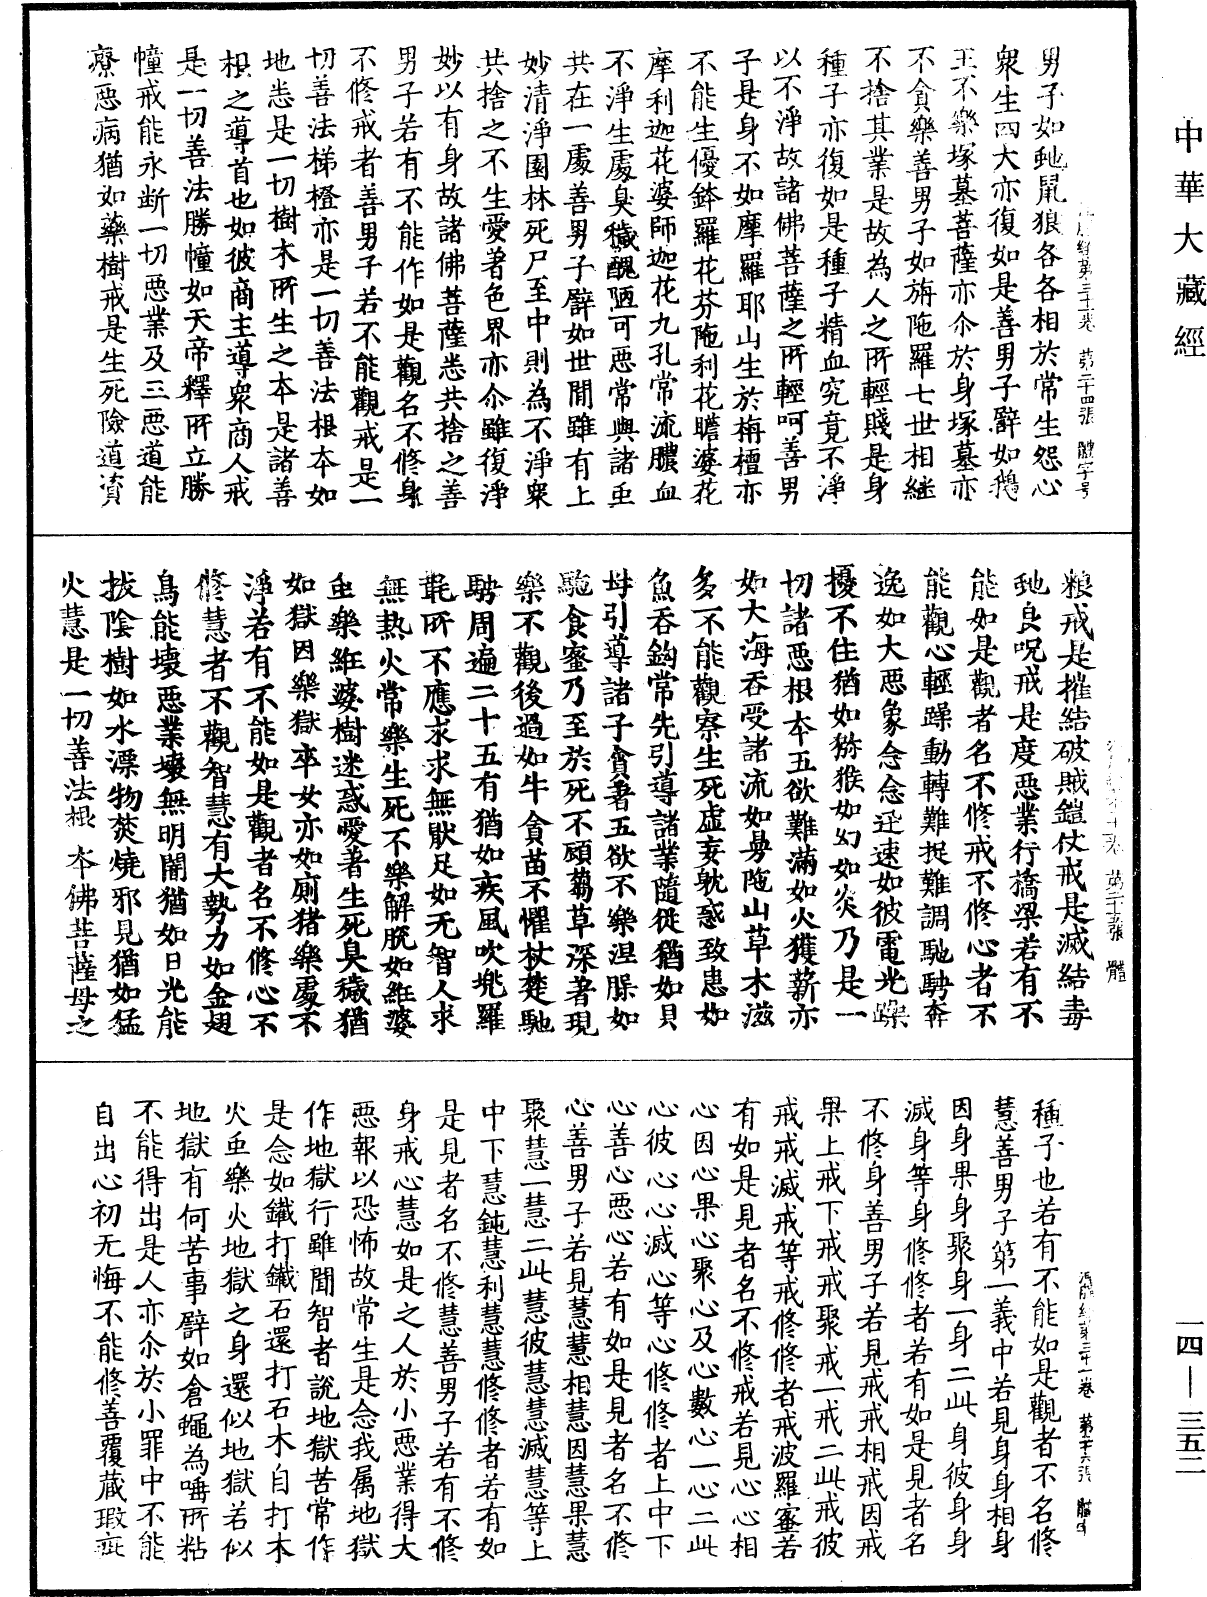 中華大藏經
男子如虵鼠狼各各相於常生怨心
衆生四大亦復如是善男子譬如鵝
王不樂塚墓菩薩亦尒於身塚墓亦
不貪樂善男子如旃陁羅七世相継
不捨其業是故為人之所輕賤是身
種子亦復如是種子精血究竟不淨
以不淨故諸佛菩薩之所輕呵善男
子是身不如摩羅耶山生於栴檀亦
不能生優鉢羅花芬陁利花瞻婆花
摩利迦花婆師迦花九孔常流膿血
不淨生處臭穢醜陋可惡常與諸虫
共在一處善男子譬如世間雖有上
妙清淨園林死尸至中則為不淨衆
共捨之不生愛著色界亦尒雖復淨
妙以有身故諸佛菩薩悉共捨之善
男子若有不能作如是觀名不修身
不修戒者善男子若不能觀戒是一
切善法梯橙亦是一切善法根本如
地悉是一切樹木所生之本是諸善
根之導首也如彼商主導衆商人戒
是一切善法勝幢如天帝釋所立勝
幢戒能永斷一切惡業及三惡道能
療惡病猶如藥樹戒是生死險道資
粮戒是摧結破賊鎧仗戒是滅結毒
虵良呪戒是度惡業行橋梁若有不
能如是觀者名不修戒不修心者不
能觀心輕躁動轉難捉難調馳騁奔
逸如大惡象念念迅速如彼電光躁
擾不住猶如獼猴如幻如炎乃是一
切諸惡根本五欲難滿如火獲薪亦
如大海吞受諸流如曼陁山草木滋
多不能觀察生死虛妄躭惑致患如
魚吞鈎常先引導諸業隨從猶如貝
母引導諸子貪著五欲不樂涅槃如
駞食蜜乃至於死不顧蒭草深著現
樂不觀後過如牛貪苗不懼杖楚馳
騁周遍二十五有猶如疾風吹兠羅
毦所不應求求無猒足如无智人求
無熱火常樂生死不樂解脫如紝婆
虫樂紝婆樹迷惑愛著生死臭穢猶
如獄囚樂獄卒女亦如廁猪樂處不
淨若有不能如是觀者名不修心不
修慧者不觀智慧有大勢力如金翅
鳥能壞惡業壞無明闇猶如日光能
拔陰樹如水漂物焚燒邪見猶如猛
火慧是一切善法根本佛菩薩母之
種子也若有不能如是觀者不名修
慧善男子第一義中若見身身相身
因身果身聚身一身二此身彼身身
滅身等身修修者若有如是見者名
不修身善男子若見戒戒相戒因戒
果上戒下戒戒聚戒一戒二此戒彼
戒戒滅戒等戒修修者戒波羅蜜若
有如是見者名不修戒若見心心相
心因心果心聚心及心數心一心二此
心彼心心滅心等心修修者上中下
心善心惡心若有如是見者名不修
心善男子若見慧慧相慧因慧果慧
聚慧一慧二此慧彼慧慧滅慧等上
中下慧鈍慧利慧慧修修者若有如
是見者名不修慧善男子若有不修
身戒心慧如是之人於小惡業得大
惡報以恐怖故常生是念我属地獄
作地獄行雖聞智者說地獄苦常作
是念如鐵打鐵石還打石木自打木
火虫樂火地獄之身還似地獄若似
地獄有何苦事譬如倉蠅為唾所粘
不能得出是人亦尒於小罪中不能
自出心初无悔不能修善覆藏瑕疵
一四—三五二